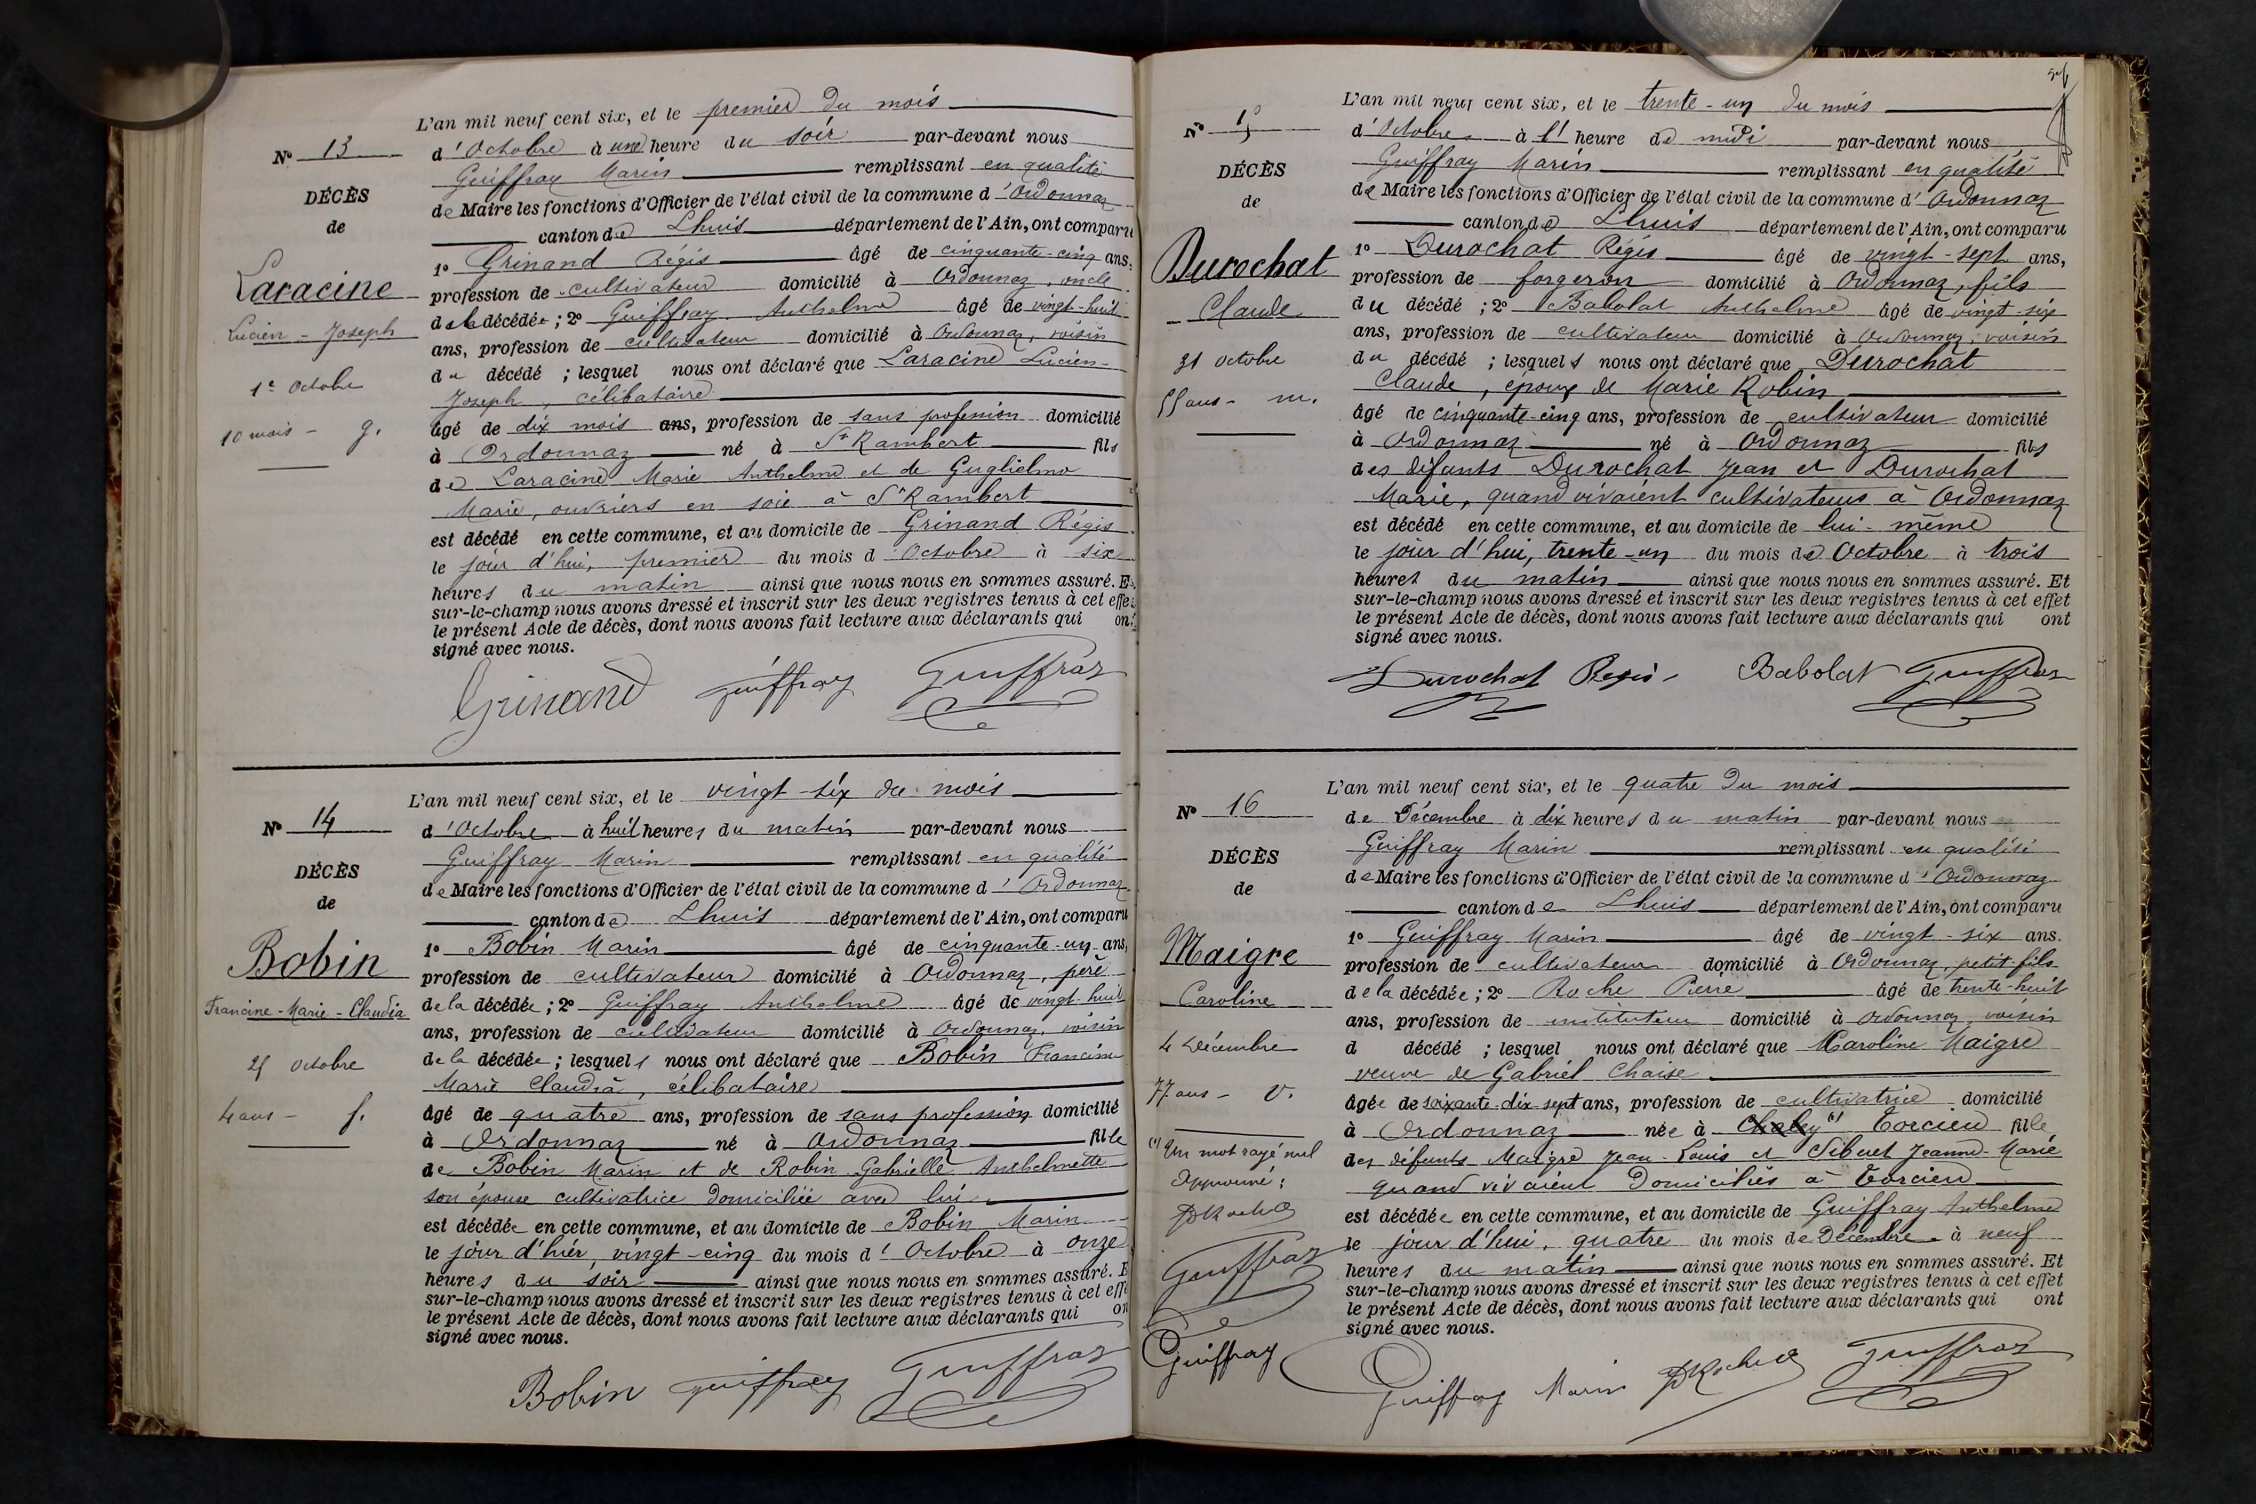 L'an mil neuf cent six, et le premier du mois
Nº 13
d'Octobre à une heure du soir par-devant nous
Guiffray Marin remplissant en qualité
DÉCÈS
de Maire les fonctions d'Officier de l'état civil de la commune d'Ordonnaz
de
canton de Lhuis département de l'Ain, ont comparu
1º Grinand Régis âgé de cinquante-cinq ans,
Laracine
profession de cultivateur domicilié à Ordonnaz, oncle
Lucien-Joseph
de la décédée; 2º Guiffray Anthelme âgé de vingt-huit
ans, profession de cultivateur domicilié à Ordonnaz, voisin
du décédé; lesquel nous ont déclaré que Laracine Lucien-
1e Octobre
Joseph, célibataire
10 mois - g.
âgé de dix mois ans, profession de sans profession domicilié
à Ordonnaz né à St Rambert fils
de Laracine Marie Anthelme et de Guglielmo
Marie, ouvriers en soie à St Rambert
est décédé en cette commune, et au domicile de Grinand Régis
le jour d'hui, premier du mois d'Octobre à six
heures du matin ainsi que nous nous en sommes assuré. Et
sur-le-champ nous avons dressé et inscrit sur les deux registres tenus à cet effet
le présent Acte de décès, dont nous avons fait lecture aux déclarants qui ont
signé avec nous.
Grinand Guiffray Guiffray
L'an mil neuf cent six, et le vingt-six du mois
Nº 14
d'Octobre à huit heures du matin par-devant nous
Guiffray Marin remplissant en qualité
DÉCÈS
de Maire les fonctions d'Officier de l'état civil de la commune d'Ordonnaz
de
canton de Lhuis département de l'Ain, ont comparu
1º Bobin Marin âgé de cinquante-un ans,
Bobin
profession de cultivateur domicilié à Ordonnaz, père
Francine-Marie-Claudia
de la décédée; 2º Guiffray Anthelme âgé de vingt-huit
ans, profession de cultivateur domicilié à Ordonnaz, voisin
25 Octobre
de la décédée; lesquels nous ont déclaré que Bobin Francine
Marie Claudia, célibataire
4 ans - f.
âgé de quatre ans, profession de sans profession domicilié
à Ordonnaz né à Ordonnaz fille
de Bobin Marin et de Robin Gabrielle Anthelmette
son épouse cultivatrice domiciliée avec lui
est décédée en cette commune, et au domicile de Bobin Marin
le jour d'hier, vingt-cinq du mois d'Octobre à onze
heures du soir ainsi que nous nous en sommes assuré. E
sur-le-champ nous avons dressé et inscrit sur les deux registres tenus à cet effe
le présent Acte de décès, dont nous avons fait lecture aux déclarants qui on
signé avec nous.
Bobin Guiffray Guiffray
L'an mil neuf cent six, et le trente-un du mois
Nº 15
d'Octobre à l'heure de midi par-devant nous
Guiffray Marin remplissant en qualité
DÉCÈS
de Maire les fonctions d'Officier de l'état civil de la commune d'Ordonnaz
de
canton de Lhuis département de l'Ain, ont comparu
1º Durochat Régis âgé de vingt-sept ans,
Durochat
profession de forgeron domicilié à Ordonnaz, fils
Claude
du décédé; 2º Babolat Anthelme âgé de vingt-six
ans, profession de cultivateur domicilié à Ordonnaz, voisin
31 octobre
du décédé; lesquels nous ont déclaré que Durochat
Claude, époux de Marie Robin
55 ans - m.
âgé de cinquante-cinq ans, profession de cultivateur domicilié
à Ordonnaz né à Ordonnaz fils
des défunts Durochat Jean et Durochat
Marie, quand vivaient cultivateurs à Ordonnaz
est décédé en cette commune, et au domicile de lui-même
le jour d'hui, trente-un du mois de Octobre à trois
heures du matin ainsi que nous nous en sommes assuré. Et
sur-le-champ nous avons dressé et inscrit sur les deux registres tenus à cet effet
le présent Acte de décès, dont nous avons fait lecture aux déclarants qui ont
signé avec nous.
Durochat Regis Babolat Guiffray
L'an mil neuf cent six, et le quatre du mois
Nº 16
de Décembre à dix heures du matin par-devant nous
Guiffray Marin remplissant en qualité
DÉCÈS
de Maire les fonctions d'Officier de l'état civil de la commune d'Ordonnaz
de
canton de Lhuis département de l'Ain, ont comparu
1º Guiffray Marin âgé de vingt-six ans.
Maigre
profession de cultivateur domicilié à Ordonnaz, petit-fils
Caroline
de la décédée; 2º Roche Pierre âgé de trente-huit
ans, profession de instituteur domicilié à Ordonnaz, voisin
4 Décembre
d décédé; lesquel nous ont déclaré que Caroline Maigre
veuve de Gabriel Chaise
77 ans - v.
âgée de soixante-dix-sept ans, profession de cultivatrice domicilié
à Ordonnaz née à Chaley (1) Torcieu fille
(1) Un mot rayé nul
des défunts Maigre Jean-Louis et Sibuet Jeanne-Marie
Approuvé:
quand vivaient domiciliés à Torcieu
PRoche
est décédée en cette commune, et au domicile de Guiffray Anthelme
Guiffray
le jour d'hui, quatre du mois de Décembre à neuf
heures du matin ainsi que nous nous en sommes assuré. Et
sur-le-champ nous avons dressé et inscrit sur les deux registres tenus à cet effet
le présent Acte de décès, dont nous avons fait lecture aux déclarants qui ont
signé avec nous.
Guiffray
Guiffray Marin PRoche Guiffray